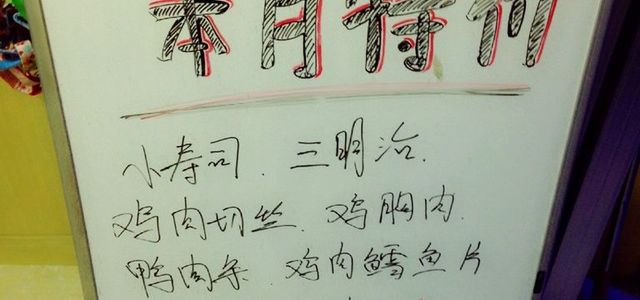 本月特价
小寿司、三明治、
鸡肉切丝、鸡胸肉、
鸭肉条、鸡肉鳕鱼片